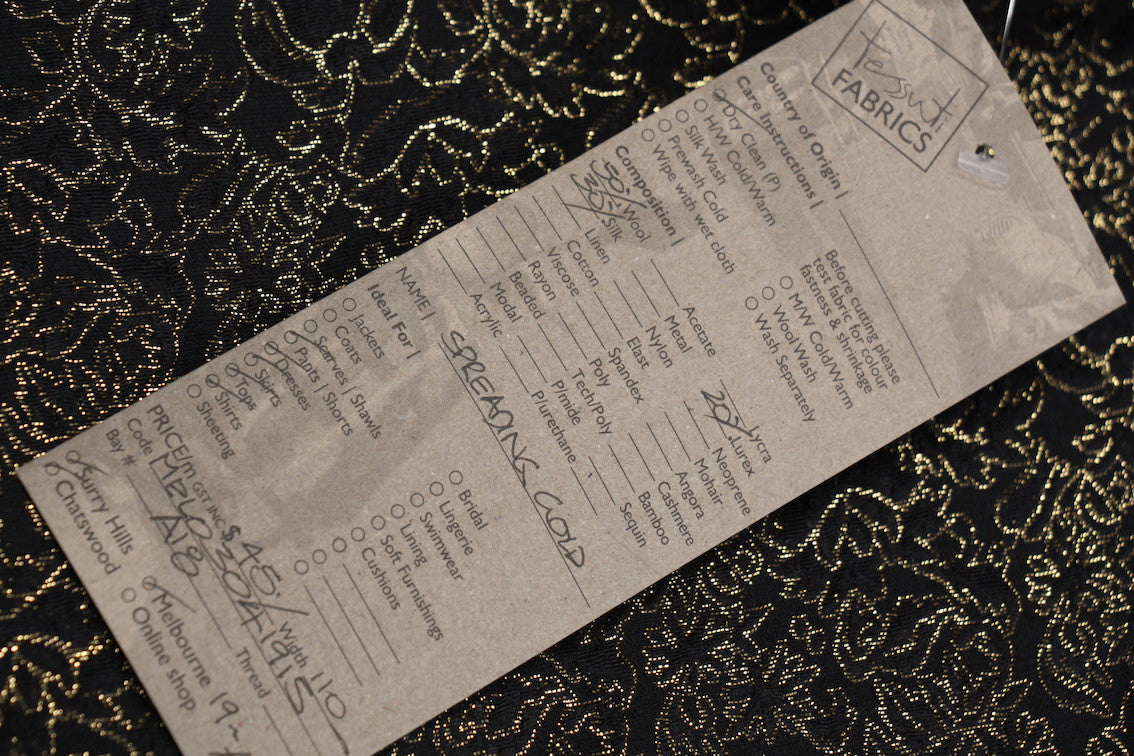 Tessuti
FABRICS
Country of Origin |
Care Instructions |
Dry Clean (P)
H/W Cold/Warm
Silk Wash
Prewash Cold
Wipe with wet cloth
Before cutting please
test fabric for colour
fastness & shrinkage
M/W Cold/Warm
Wool Wash
Wash Separately
Composition |
50% Wool
30% Silk
Linen
Cotton
Viscose
Rayon
Beaded
Modal
Acrylic
Acetate
Metal
Nylon
Elast
Spandex
Poly
Tech/Poly
P/mide
Plurethane
Lycra
20% Lurex
Neoprene
Mohair
Angora
Cashmere
Bamboo
Sequin
NAME | SPREADING GOLD
Ideal For |
Jackets
Coats
Scarves | Shawls
Pants | Shorts
Dresses
Skirts
Tops
Shirts
Sheeting
Bridal
Lingerie
Swimwear
Lining
Soft Furnishings
Cushions
PRICE/m GST INC $ 45/ Width 110
Code
Bay # A18 Thread
Surry Hills
Chatswood
Melbourne 19-
Online shop